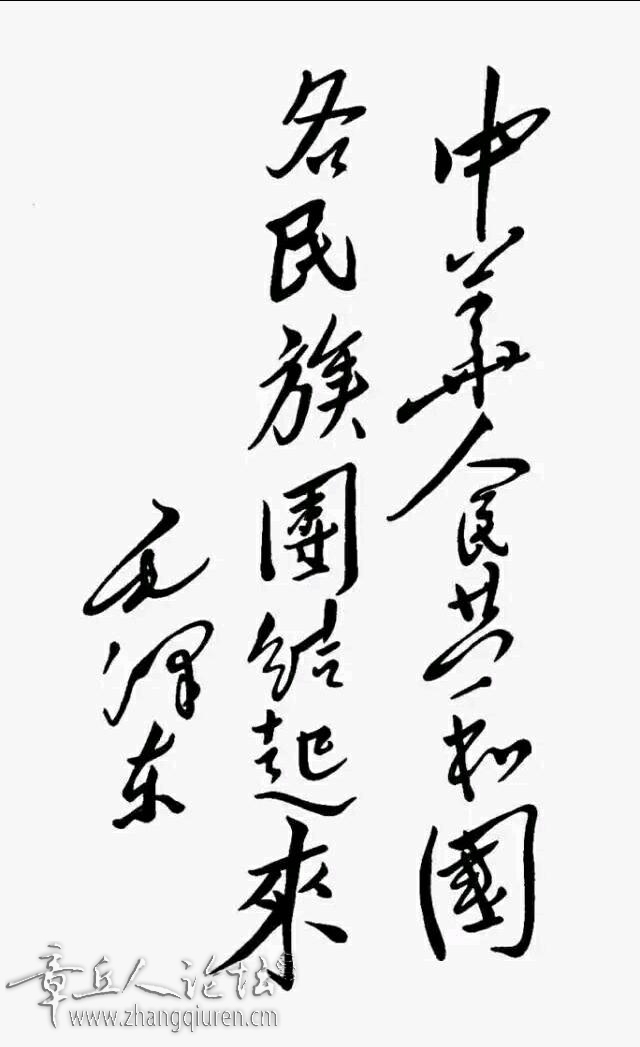 中華人民共和國
各民族團结起來
毛泽东
章丘人论坛
www.zhangqiuren.cn